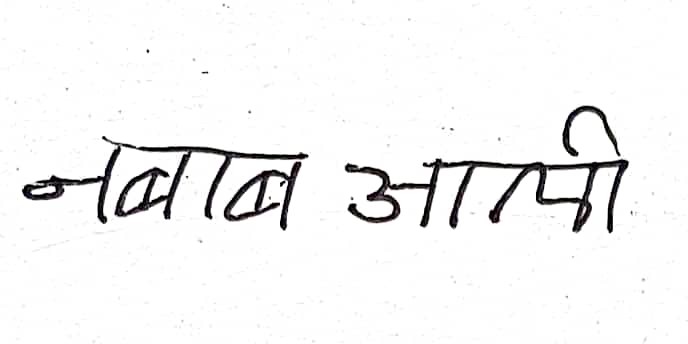 नबाब आली